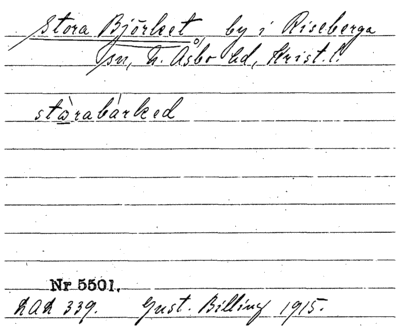 Stora Björket by i Riseberga
sn, N. Åsbo hd, Krist. l.
stàrabárked
Nr 5501.
LAL 339. Gust. Billing 1915.